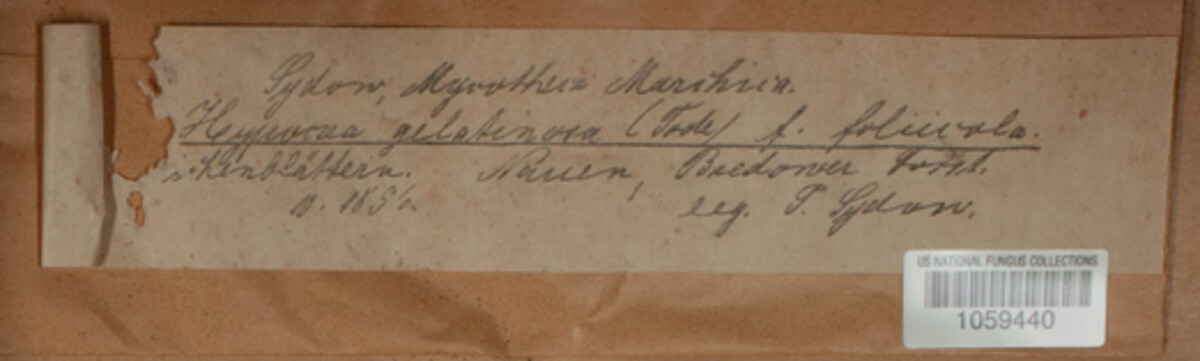 Sydow, Mycotheca Marchica.
Hypocrea gelatinosa (Tode) f. foliicola.
kenblättern. Nauen, Bredower Forst.
leg. P. Sydow.
US NATIONAL FUNGUS COLLECTIONS
1059440